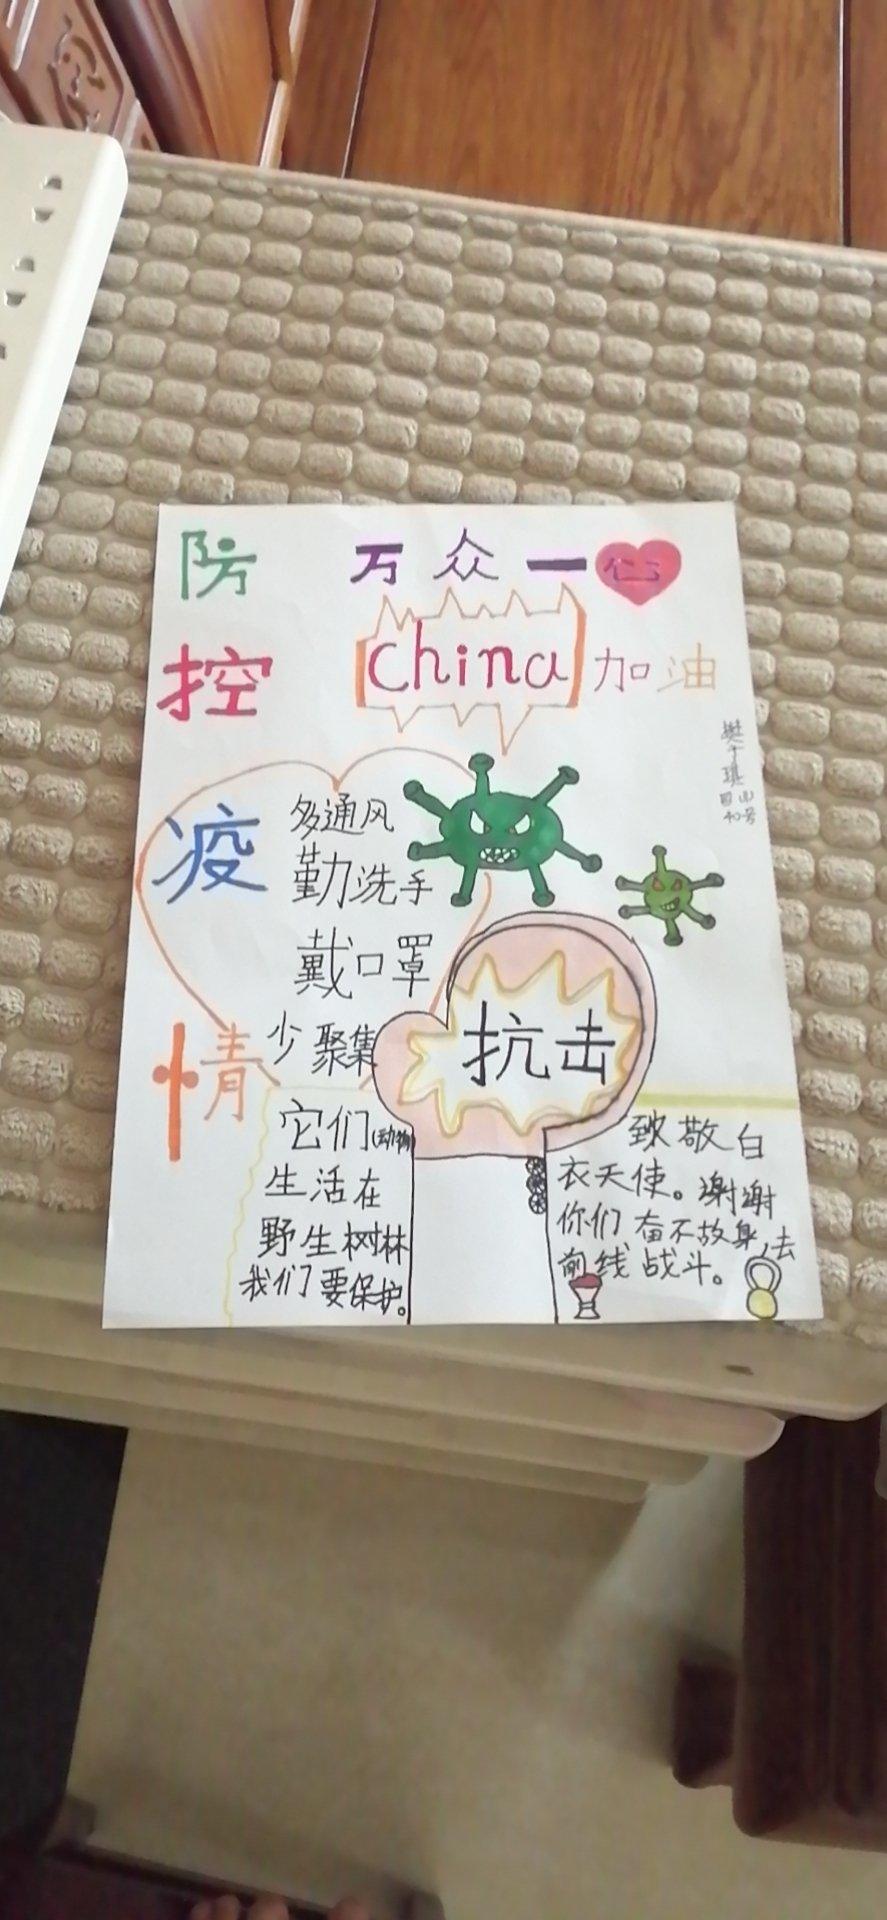 防控疫情
万众一心
China加油
多通风
勤洗手
戴口罩
少聚集
抗击
它们(动物)
生活在
野生树林
我们要保护。
致敬白
衣天使。谢谢
你们奋不故身,去
前线战斗。